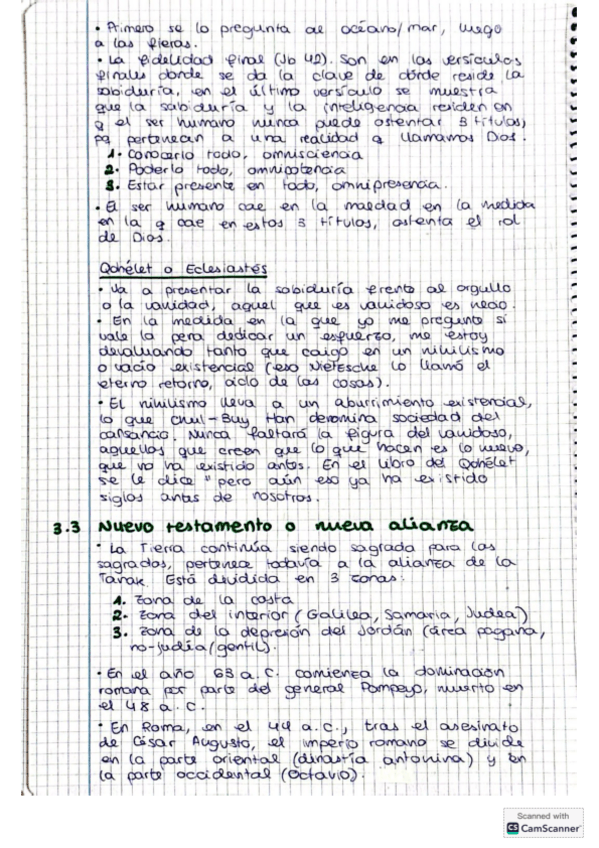 • Primero se lo pregunta al océano/mar, luego
a las fieras.
• La fidelidad final (Jb 42). Son en los versículos
finales donde se da la clave de dónde reside la
sabiduría, en el último versículo se muestra
que la sabiduría y la inteligencia residen en
q el ser humano nunca puede ostentar 3 títulos,
pq pertenecen a una realidad q llamamos Dios.
1. Conocerlo todo, omnisciencia
2. Poderlo todo, omnipotencia
3. Estar presente en todo, omnipresencia.
• El ser humano cae en la maldad en la medida
en la q cae en estos 3 títulos, ostenta el rol
de Dios.
Qohélet o Eclesiastés
• Va a presentar la sabiduría frente al orgullo
o la vanidad, aquel que es vanidoso es necio.
• En la medida en la que yo me pregunte si
vale la pena dedicar un esfuerzo, me estoy
devaluando tanto que caigo en un nihilismo
o vacío existencial (eso Nietzsche lo llamó el
eterno retorno, ciclo de las cosas).
• El nihilismo lleva a un aburrimiento existencial,
lo que Chul-Buy Han denomina sociedad del
cansancio. Nunca faltará la figura del vanidoso,
aquellos que creen que lo que hacen es lo nuevo,
que no ha existido antes. En el libro del Qohélet
se le dice "pero aún eso ya ha existido
siglos antes de nosotros.
3.3 Nuevo testamento o nueva alianza
• La Tierra continúa siendo sagrada para los
sagrados, pertenece todavía a la alianza de la
Tanak. Está dividida en 3 zonas:
1. Zona de la costa
2. Zona del interior (Galilea, Samaria, Judea)
3. Zona de la depresión del Jordán (área pagana,
no-judía/gentil).
• En el año 63 a.C. comienza la dominación
romana por parte del general Pompeyo, muerto en
el 48 a.C.
• En Roma, en el 44 a.C., tras el asesinato
de César Augusto, el imperio romano se divide
en la parte oriental (dinastía antonina) y en
la parte occidental (Octavio).
Scanned with
CS CamScanner